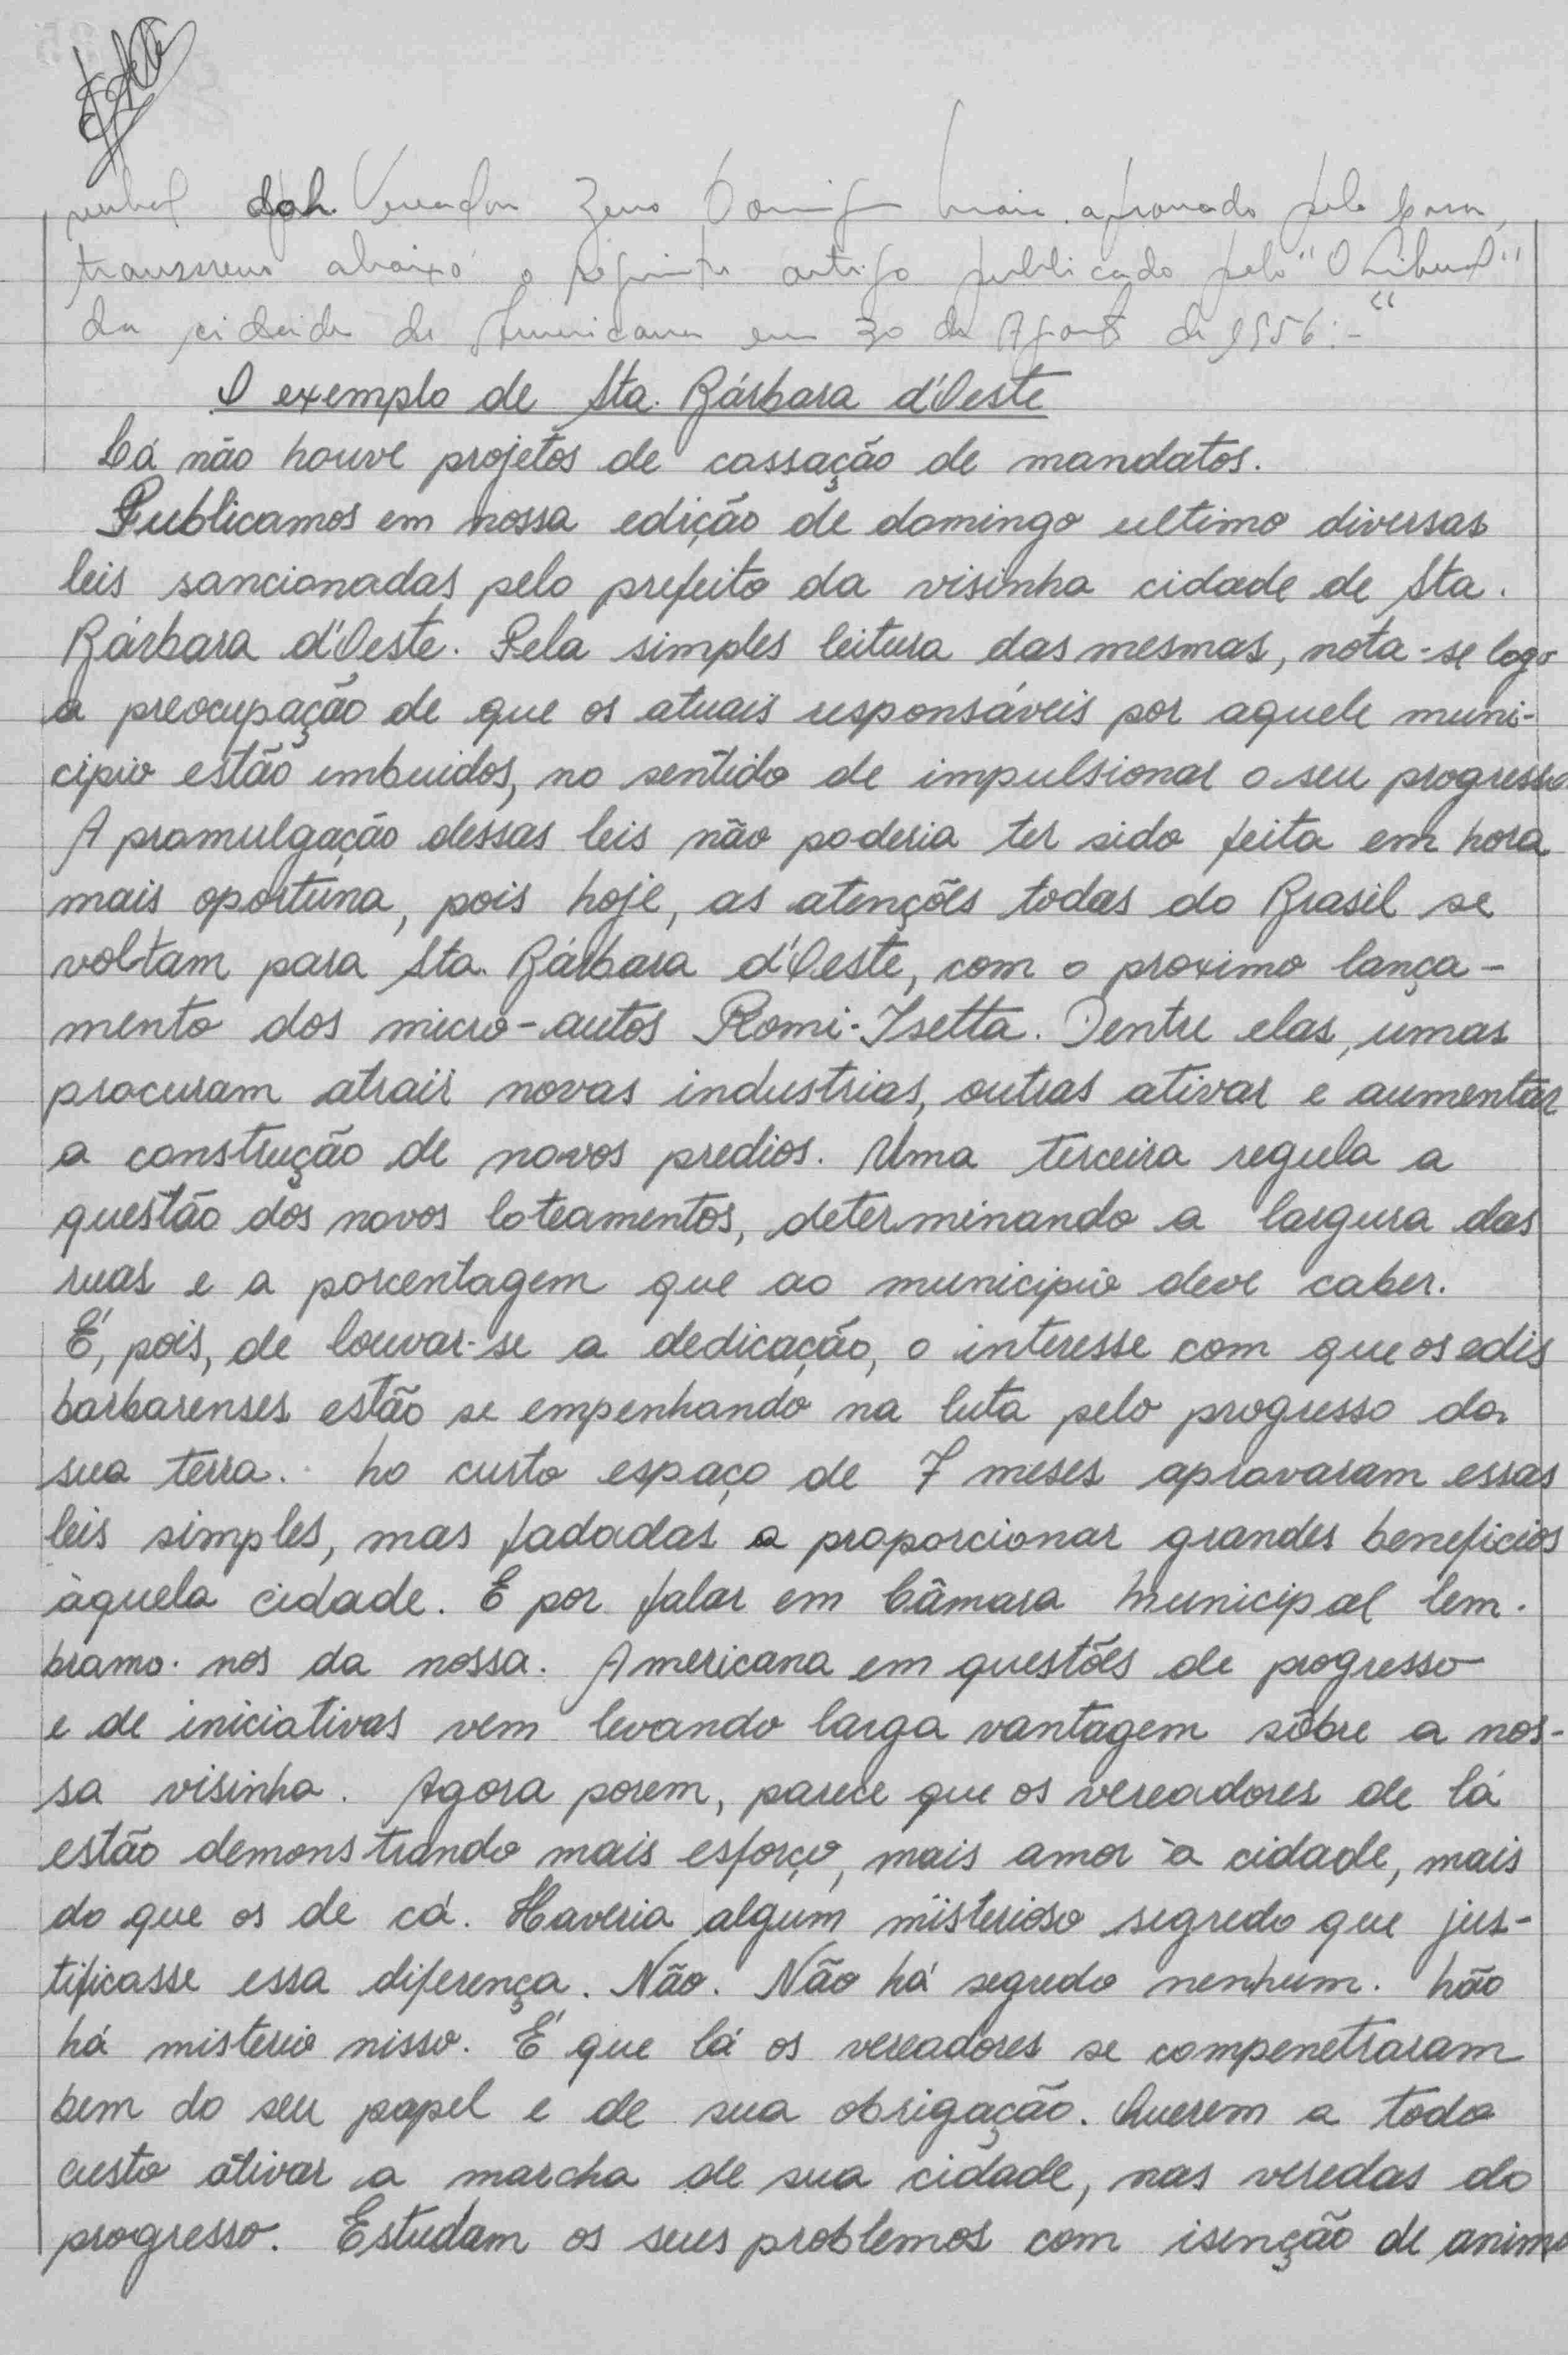 Vereador Zeno Domingos Maia aprovado pela Casa,
abaixo o seguinte artigo publicado pelo "O Liberal"
da cidade de Americana em 30 de Agosto de 1956:- "
O exemplo de Sta. Bárbara d'Oeste
Cá não houve projetos de cassação de mandatos.
Publicamos em nossa edição de domingo ultimo diversas
leis sancionadas pelo prefeito da visinha cidade de Sta.
Bárbara d'Oeste. Pela simples leitura das mesmas, nota-se logo
a preocupação de que os atuais responsáveis por aquele muni-
cipio estão imbuidos, no sentido de impulsionar o seu progresso.
A promulgação dessas leis não poderia ter sido feita em hora
mais oportuna, pois hoje, as atenções todas do Brasil se
voltam para Sta. Bárbara d'Oeste, com o proximo lança-
mento dos micro-autos Romi-Isetta. Dentre elas, umas
procuram atrair novas industrias, outras ativar e aumentar
a construção de novos predios. Uma terceira regula a
questão dos novos loteamentos, determinando a largura das
ruas e a porcentagem que ao municipio deve caber.
É, pois, de louvar-se a dedicação, o interesse com que os edis
barbarenses estão se empenhando na luta pelo progresso da
sua terra. No curto espaço de 7 meses aprovaram essas
leis simples, mas fadadas a proporcionar grandes beneficios
àquela cidade. E por falar em Câmara Municipal lem-
bramo-nos da nossa. Americana em questões de progresso
e de iniciativas vem levando larga vantagem sôbre a nos-
sa visinha. Agora porem, parece que os vereadores de lá
estão demonstrando mais esforço, mais amor à cidade, mais
do que os de cá. Haveria algum misterioso segredo que jus-
tificasse essa diferença. Não. Não há segredo nenhum. Não
há misterio nisso. É que lá os vereadores se compenetraram
bem do seu papel e de sua obrigação. Querem a todo
custo ativar a marcha de sua cidade, nas veredas do
progresso. Estudam os seus problemas com isenção de animo